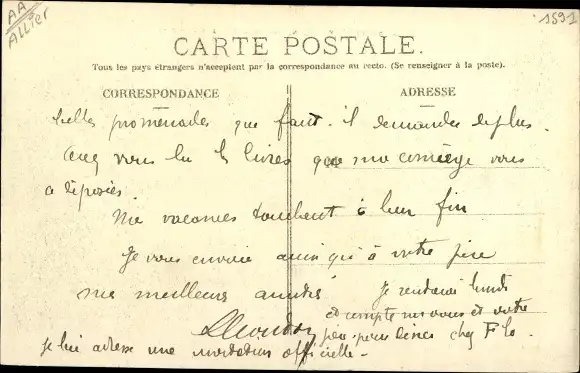 AA
Allier
1591
CARTE POSTALE.
Tous les pays étrangers n'acceptent pas la correspondance au recto. (Se renseigner à la poste).
CORRESPONDANCE
ADRESSE
belles promenades que faut-il demander de plus.
avez vous lu les livres que ma concierge vous
a déposés.
Me vacances touchent à leur fin
Je vous envoie ainsi qu'à votre père
mes meilleurs amitiés
Je rentrerai lundi
et compte sur vous et votre
père pour diner chez
je lui adresse une invitation officielle -